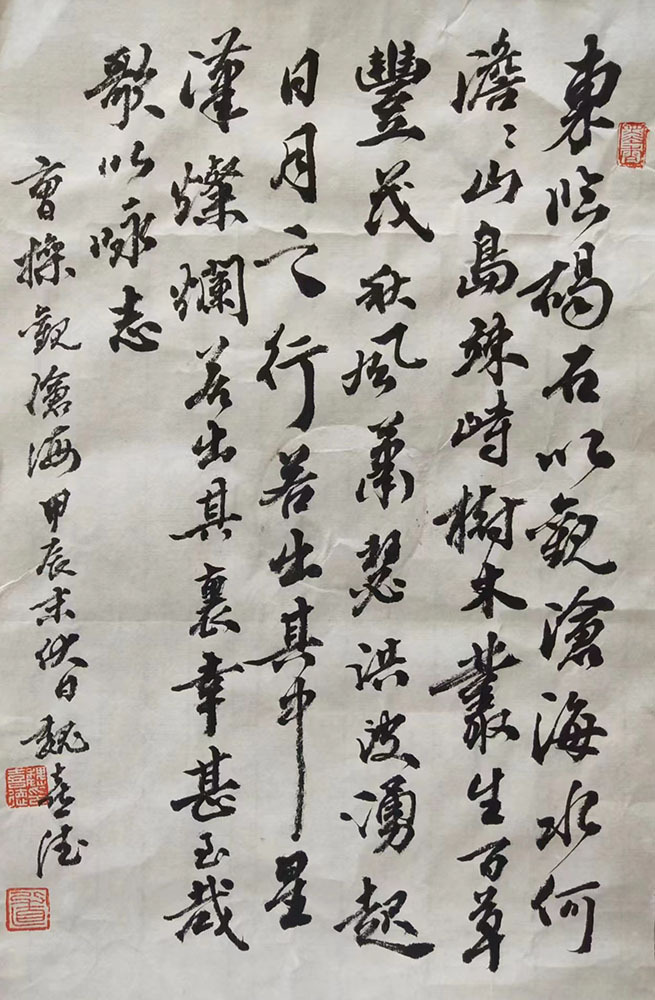 東临碣石以觀滄海水何
澹〻山島竦峙樹木叢生百草
豐茂秋風蕭瑟洪波湧起
日月之行若出其中星
漢燦爛若出其裏幸甚至哉
歌以咏志
曹操觀滄海甲辰末伏日魏喜德